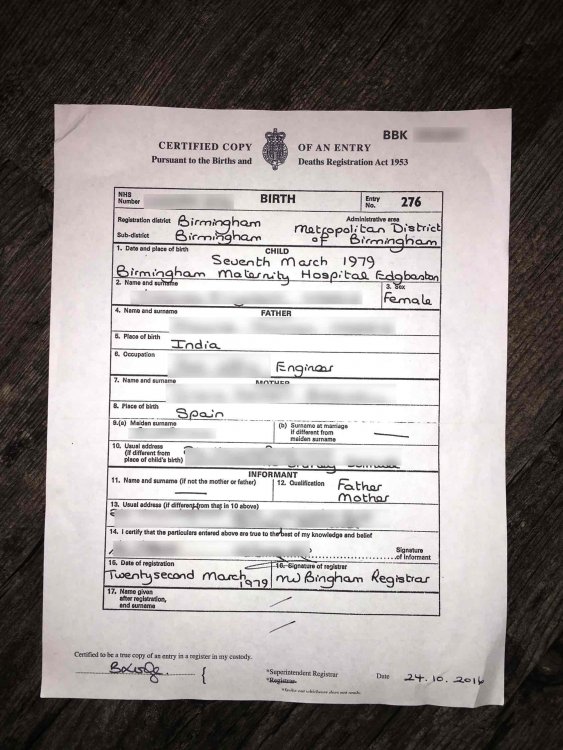 BBK
CERTIFIED COPY OF AN ENTRY
Pursuant to the Births and Deaths Registration Act 1953
NHS Number BIRTH Entry No. 276
Registration district Birmingham Administrative area
Sub-district Birmingham Metropolitan District of Birmingham
1. Date and place of birth CHILD
Seventh March 1979
Birmingham Maternity Hospital Edgbaston
2. Name and surname 3. Sex
Female
4. Name and surname FATHER
5. Place of birth
India
6. Occupation
Engineer
7. Name and surname MOTHER
8. Place of birth
Spain
9.(a) Maiden surname (b) Surname at marriage if different from maiden surname
10. Usual address (if different from place of child's birth)
INFORMANT
11. Name and surname (if not the mother or father) 12. Qualification Father
Mother
13. Usual address (if different from that in 10 above)
14. I certify that the particulars entered above are true to the best of my knowledge and belief
Signature of informant
15. Date of registration 16. Signature of registrar
Twentysecond March 1979 MW Bingham Registrar
17. Name given after registration, and surname
Certified to be a true copy of an entry in a register in my custody.
{ *Superintendent Registrar Date 24.10.2016
*Registrar
*Strike out whichever does not apply